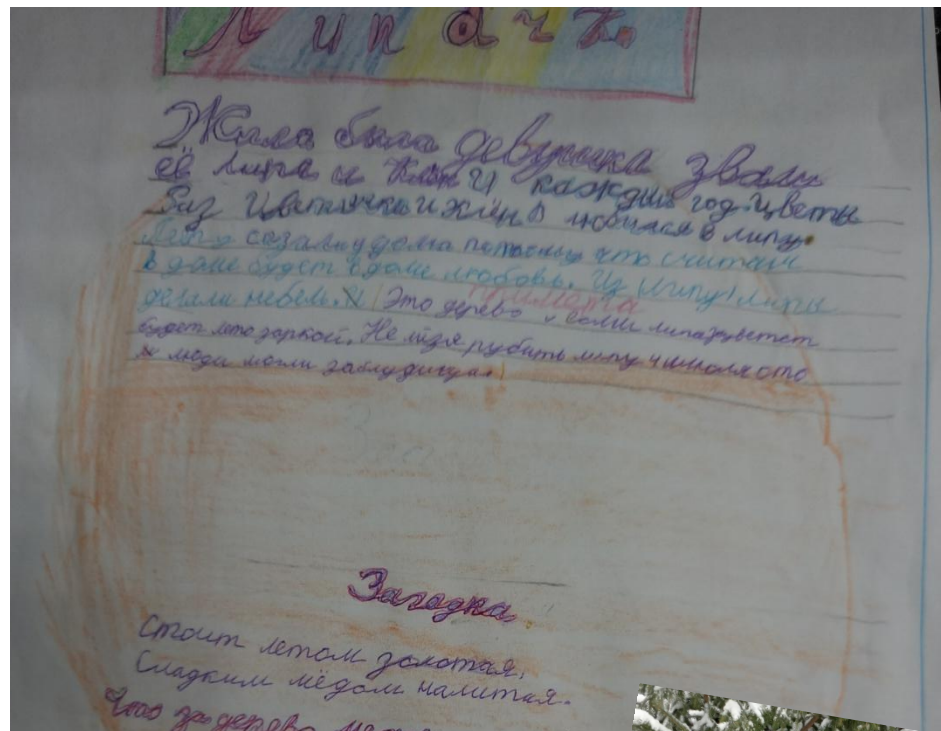 Липачк.
Жила была девушка звали
её липа и Клён И каждый год цветы
Баз Цветочки и Клён влюбился в липу
Липу сазали у дома потомучто считали
в доме будет в доме любовь. Из липу липы
делали мебель. И Это дерево примета
если липа цветет
будет лето жаркой. Не льзя рубить липу
и люди могли заблудица.
Загадка
Стоит летом золотая,
Сладким мёдом налитая.
Что за дерево